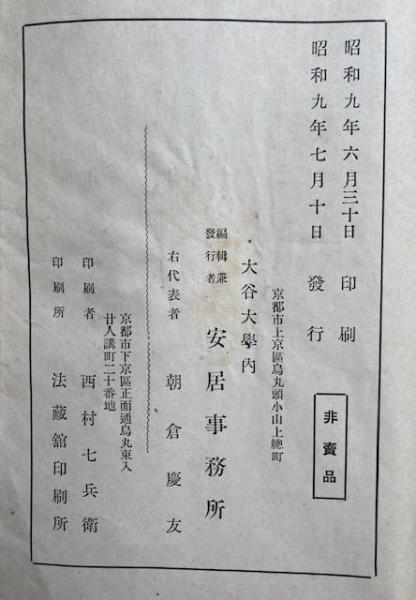 昭和九年六月三十日　印刷
昭和九年七月十日　發行
非賣品
京都市上京區烏丸頭小山上總町
大谷大學內
編輯兼發行者　安居事務所
右代表者　朝倉慶友
京都市下京區正面通烏丸東入
廿人講町二十番地
印刷者　西村七兵衛
印刷所　法藏館印刷所